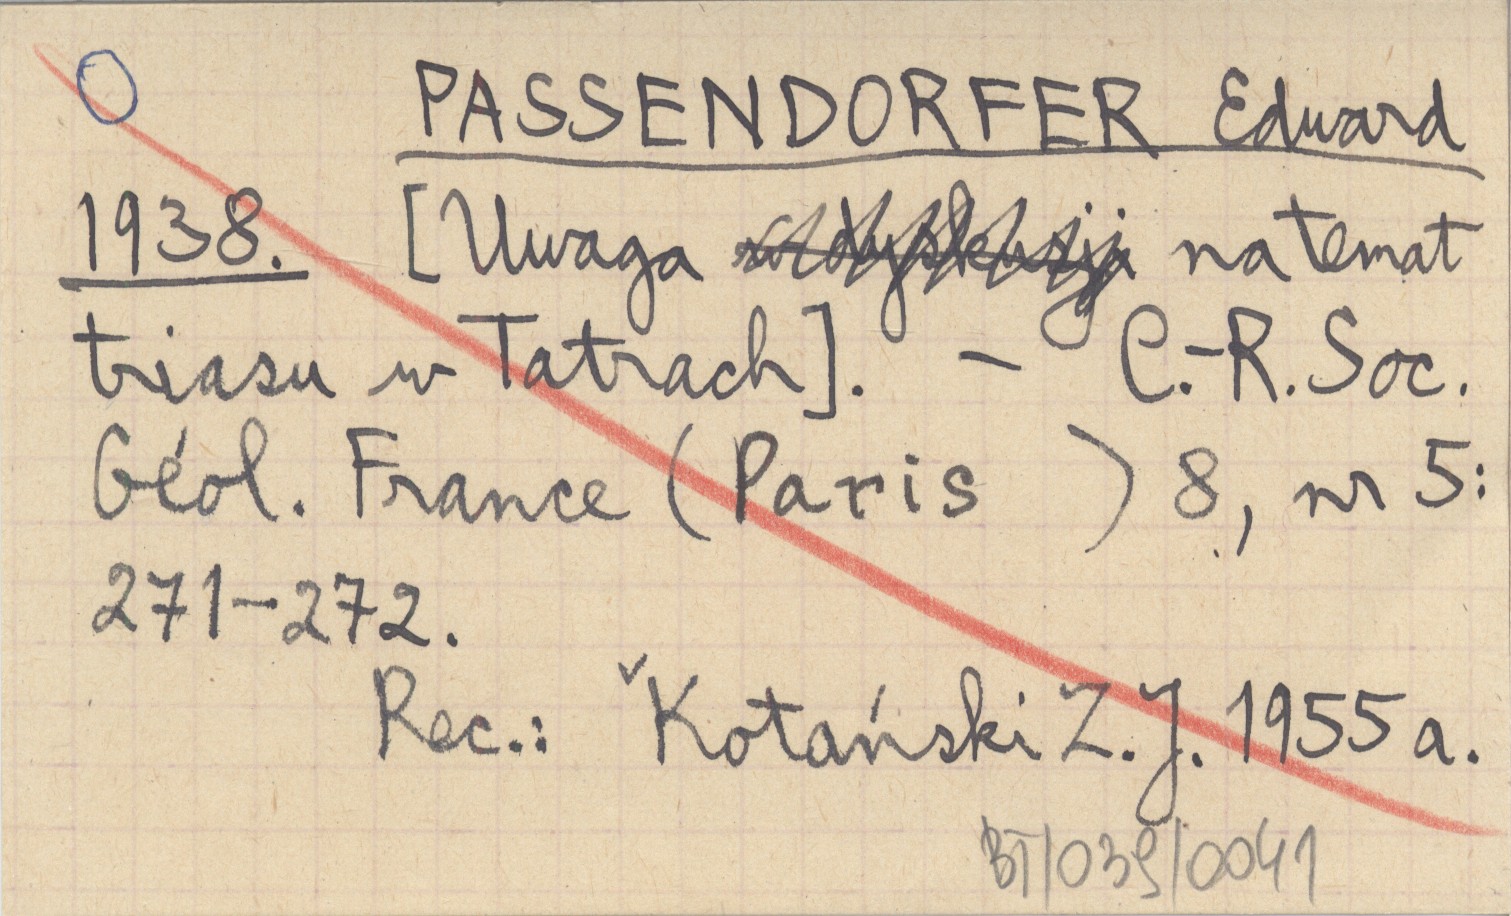 PASSENDORFER Edward
1938. [Uwaga w dyskusji na temat
triasu w Tatrach]. - C.-R. Soc.
Géol. France (Paris ) 8, nr 5:
271-272.
Rec.: ˇKotański Z.J. 1955a.
BT/039/0041